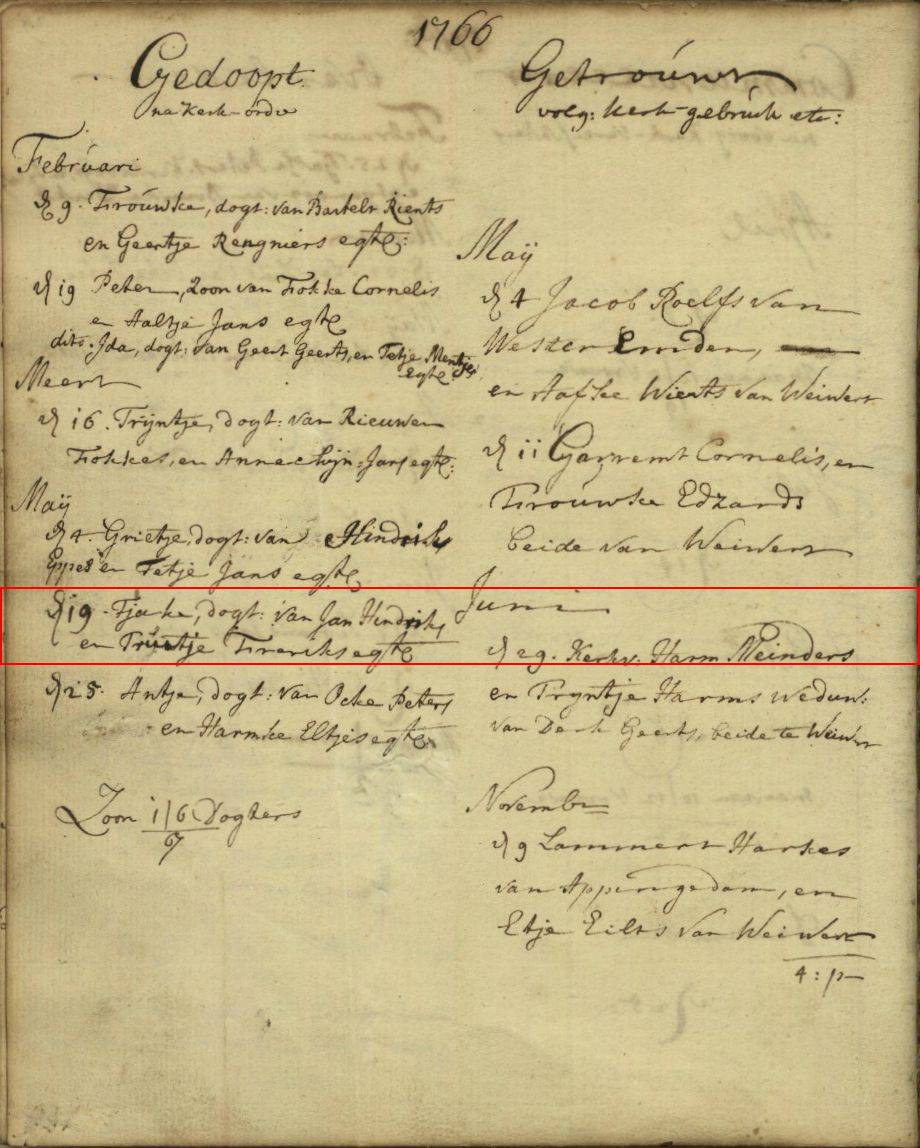 1766
Gedoopt
na Kerk-ordre
Februari
d 9. Trouwke, dogt: van Bartelt Rients
en Geertje Rengniers egte:
d 19 Peter, Zoon van Fokke Cornelis
en Aaltje Jans egte
dito. Ida, dogt: van Geert Geerts, en Tetje Mentjes
egte
Meert
d 16. Tryntje, dogt: van Rieuwen
Fokkes, en Annechijn Jans egte:
Maÿ
d 4. Grietje, dogt: van Hindriks
Eppes en Tetje Jans egte
d 19. Tjake, dogt: van Jan Hindriks
en Truitje Freriks egte
d 25. Antje, dogt: van Ocke Peters
en Harmke Eltjes egte.
Zoon 1/6 Dogters
7
Getrouwt
volg: kerk-gebruik etc:
Maÿ
d 4 Jacob Roelfs van
Wester Emden,
en Aafke Wients van Weiwert
d 11 Garremt Cornelis, en
Trouwke Edzards
beide van Weiwert
Juni
d 29. Kerkv. Harm Meinders
en Tryntje Harms weduw:
van Derk Geerts, beide te Weiwert
November
d 9 Lammert Harkes
van Appingedam, en
Etje Eilts van Weiwert
4: p